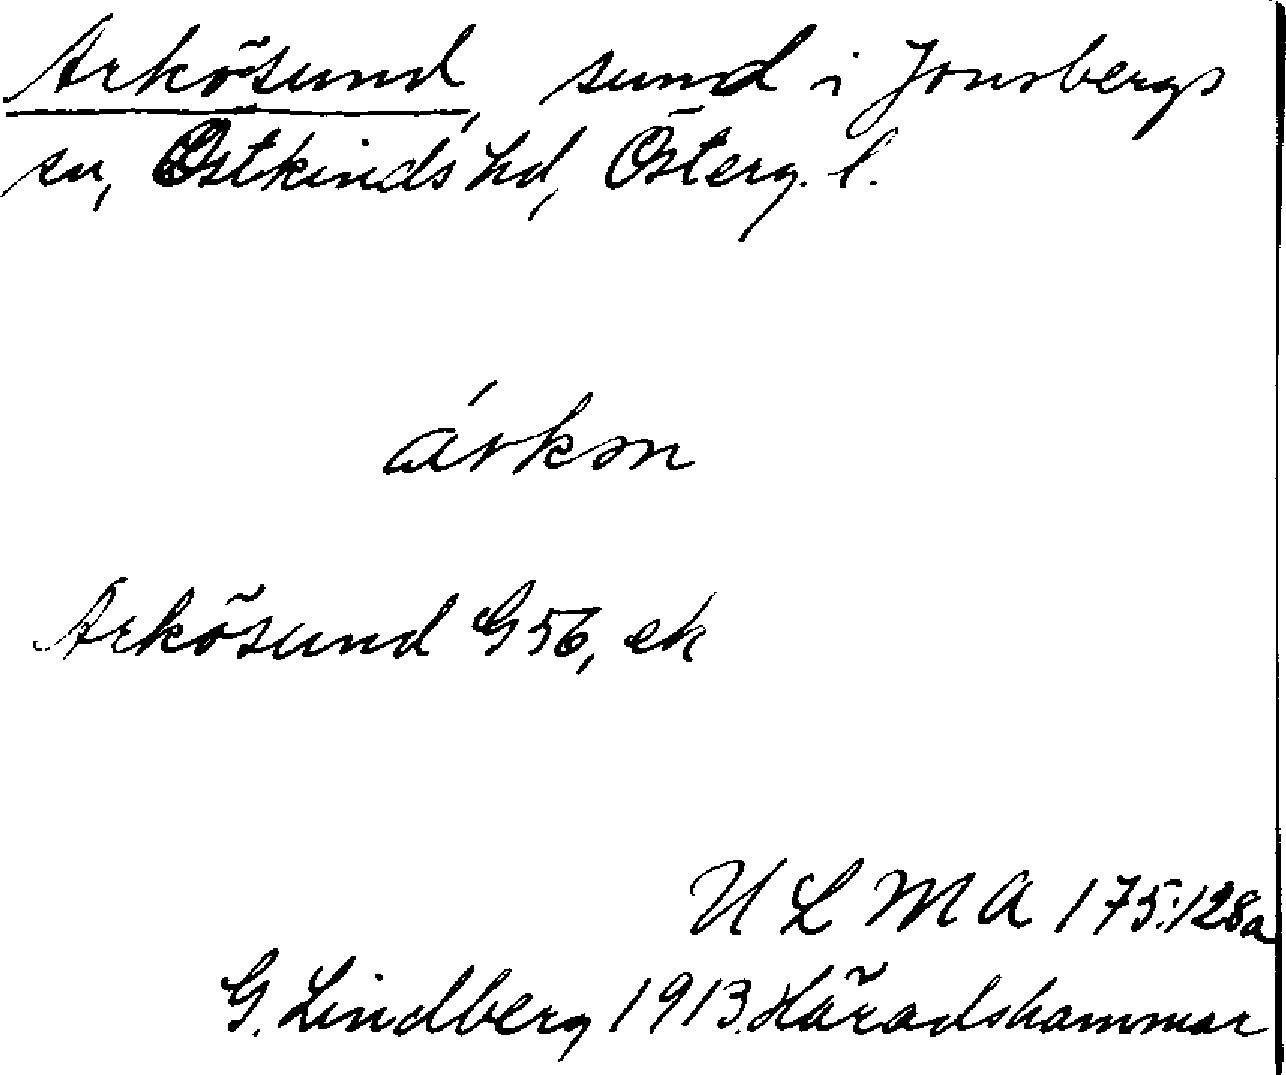 Arkösund, sund i Jonsbergs
sn, Östkinds hd, Österg. l.
árkən
Arkösund G 56, ek
ULMA 175:128a
G. Lindberg 1913. Häradshammar